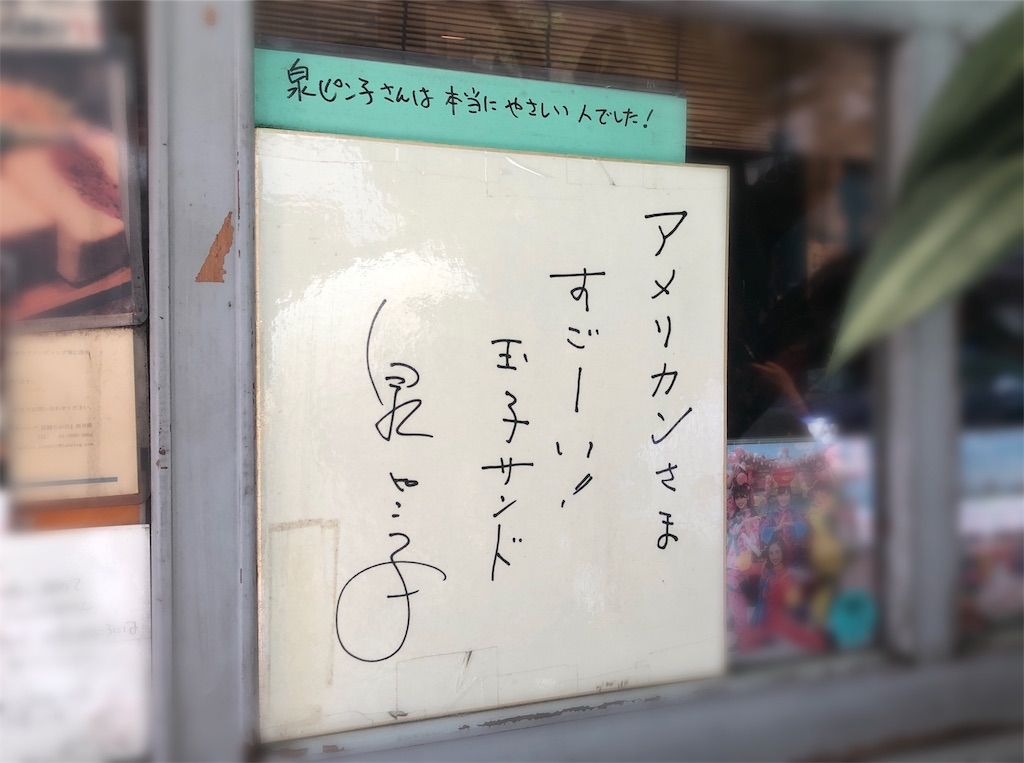 泉ピン子さんは 本当に やさしい 人でした!
アメリカンさま
すごーい!!
玉子サンド
泉ピン子